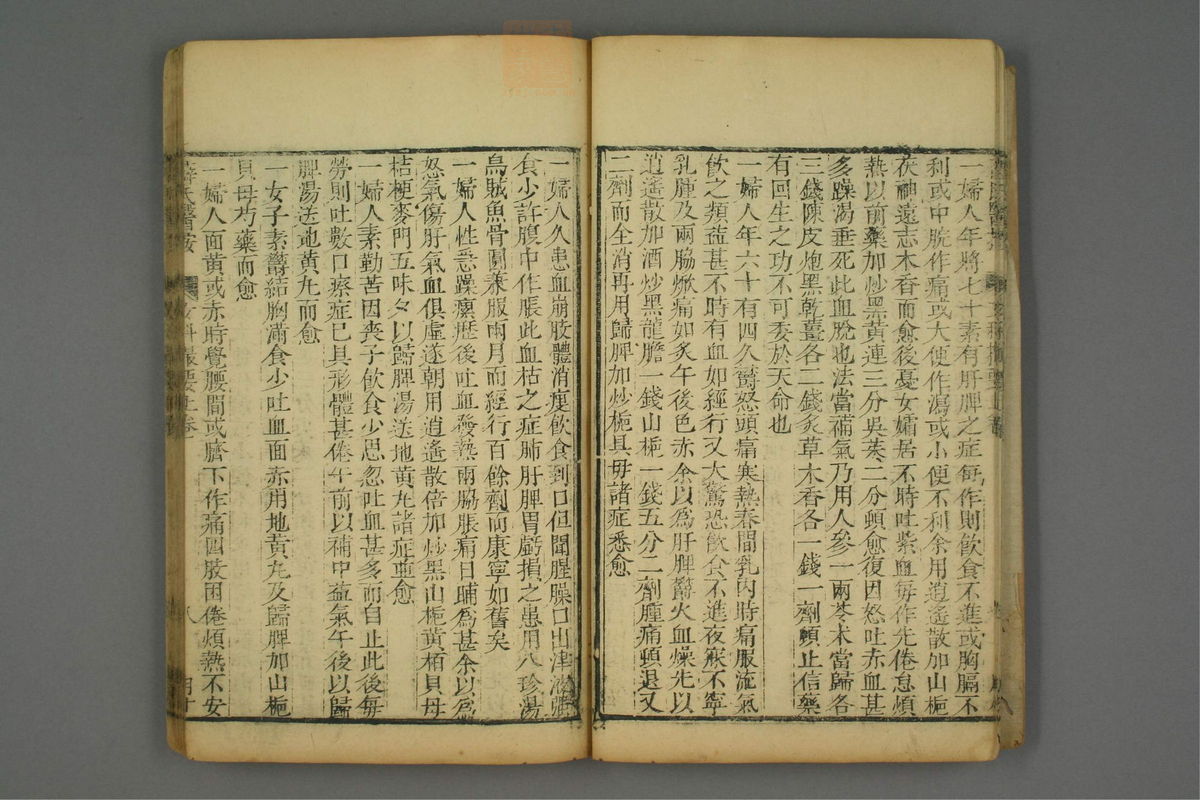 一婦人年將七十素有肝脾之症每作則飲食不進或胸膈不
利或中脘作痛或大便作瀉或小便不利余用逍遙散加山梔
茯神遠志木香而愈後憂女孀居不時吐紫血每作先倦怠煩
熱以前藥加炒黑黃連三分吳茱二分頓愈復因怒吐赤血甚
多躁渴垂死此血脫也法當補氣乃用人參一兩苓朮當歸各
三錢陳皮炮黑乾薑各二錢炙草木香各一錢一劑頓止信藥
有回生之功不可委於天命也
一婦人年六十有四久鬱怒頭痛寒熱春間乳內時痛服流氣
飲之類益甚不時有血如經行又大驚恐飲食不進夜寐不寧
乳腫及兩脇焮痛如炙午後色赤余以爲肝脾鬱火血燥先以
逍遙散加酒炒黑龍膽一錢山梔一錢五分二劑腫痛頓退又
二劑而全消再用歸脾加炒梔貝母諸症悉愈
一婦人久患血崩肢體消瘦飲食到口但聞腥臊口出津液強
食少許腹中作脹此血枯之症肺肝脾胃虧損之患用八珍湯
烏賊魚骨圓兼服兩月而經行百餘劑而康寧如舊矣
一婦人性急躁瘰癧後吐血發熱兩脇脹痛日晡爲甚余以爲
怒氣傷肝氣血俱虛遂朝用逍遙散倍加炒黑山梔黃栢貝母
桔梗麥門五味夕以歸脾湯送地黃丸諸症並愈
一婦人素勤苦因喪子飲食少思忽吐血甚多而自止此後每
勞則吐數口瘵症已具形體甚倦午前以補中益氣午後以歸
脾湯送地黃丸而愈
一女子素鬱結胸滿食少吐血面赤用地黃丸及歸脾加山梔
貝母芍藥而愈
一婦人面黃或赤時覺腰間或臍下作痛四肢困倦煩熱不安
薛氏醫按
女科撮要上卷
八